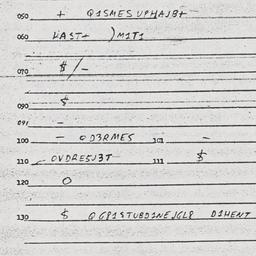 050 + Q1SMES UPHAJ8+
060 HAST+ )M1T1
070 $/-
090 $
091 -
100 - OD3RMES 101 -
110 OVDRE5J3T 111 $
120 O
130 $ QG81STUBD1NEJGL8 D1HENT